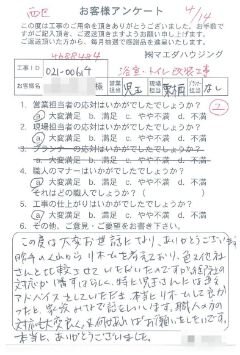 西区
お客様アンケート
4/14
この度は工事のご用命を頂きありがとうございました。お手数で
すがご記入頂き、ご返送頂きますようお願い申し上げます。
ご返送いただいた方から、毎月抽選で感謝品を進呈いたします。
㈱マエダハウジング
工事ID 021-00619
浴室・トイレ改装工事
お客様名 様 営業担当 児玉 現場担当 なし
1. 営業担当者の応対はいかがでしたでしょうか?
a. 大変満足 b. 満足 c. やや不満 d. 不満
2. 現場担当者の応対はいかがでしたでしょうか?
a. 大変満足 b. 満足 c. やや不満 d. 不満
3. プランナーの応対はいかがでしたでしょうか?
a. 大変満足 b. 満足 c. やや不満 d. 不満
4. 職人のマナーはいかがでしたでしょうか?
a. 大変満足 b. 満足 c. やや不満 d. 不満
それはどの職人でしょうか?( )
5. 工事の仕上がりはいかがでしたでしょうか?
a. 大変満足 b. 満足 c. やや不満 d. 不満
6. その他、ご意見、ご要望をお書き下さい!
この度は大変お世話になり、ありがとうございま
リフォームを考えており、色々な社
さんと比較させていただいたのですが
対応が 特に児玉さんには
アドバイスをしていただき、本当にリフォームして良かっ
たと、家族みんなで話をしています。職人の方の
対応も大変良く、又何かあればお願いしたいです。
本当に、ありがとうございました。